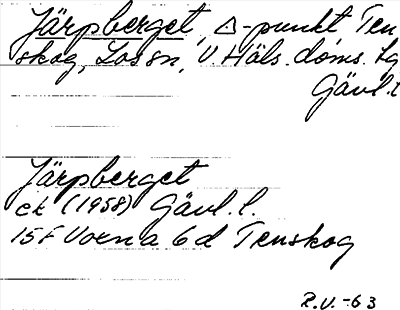 Järpberget, △-punkt Ten
skog, Los sn, V. Häls. doms. hg
Gävl. l
Järpberget
ek (1958) Gävl. l.
15F Vorna 6d Tenskog
R.V. -63